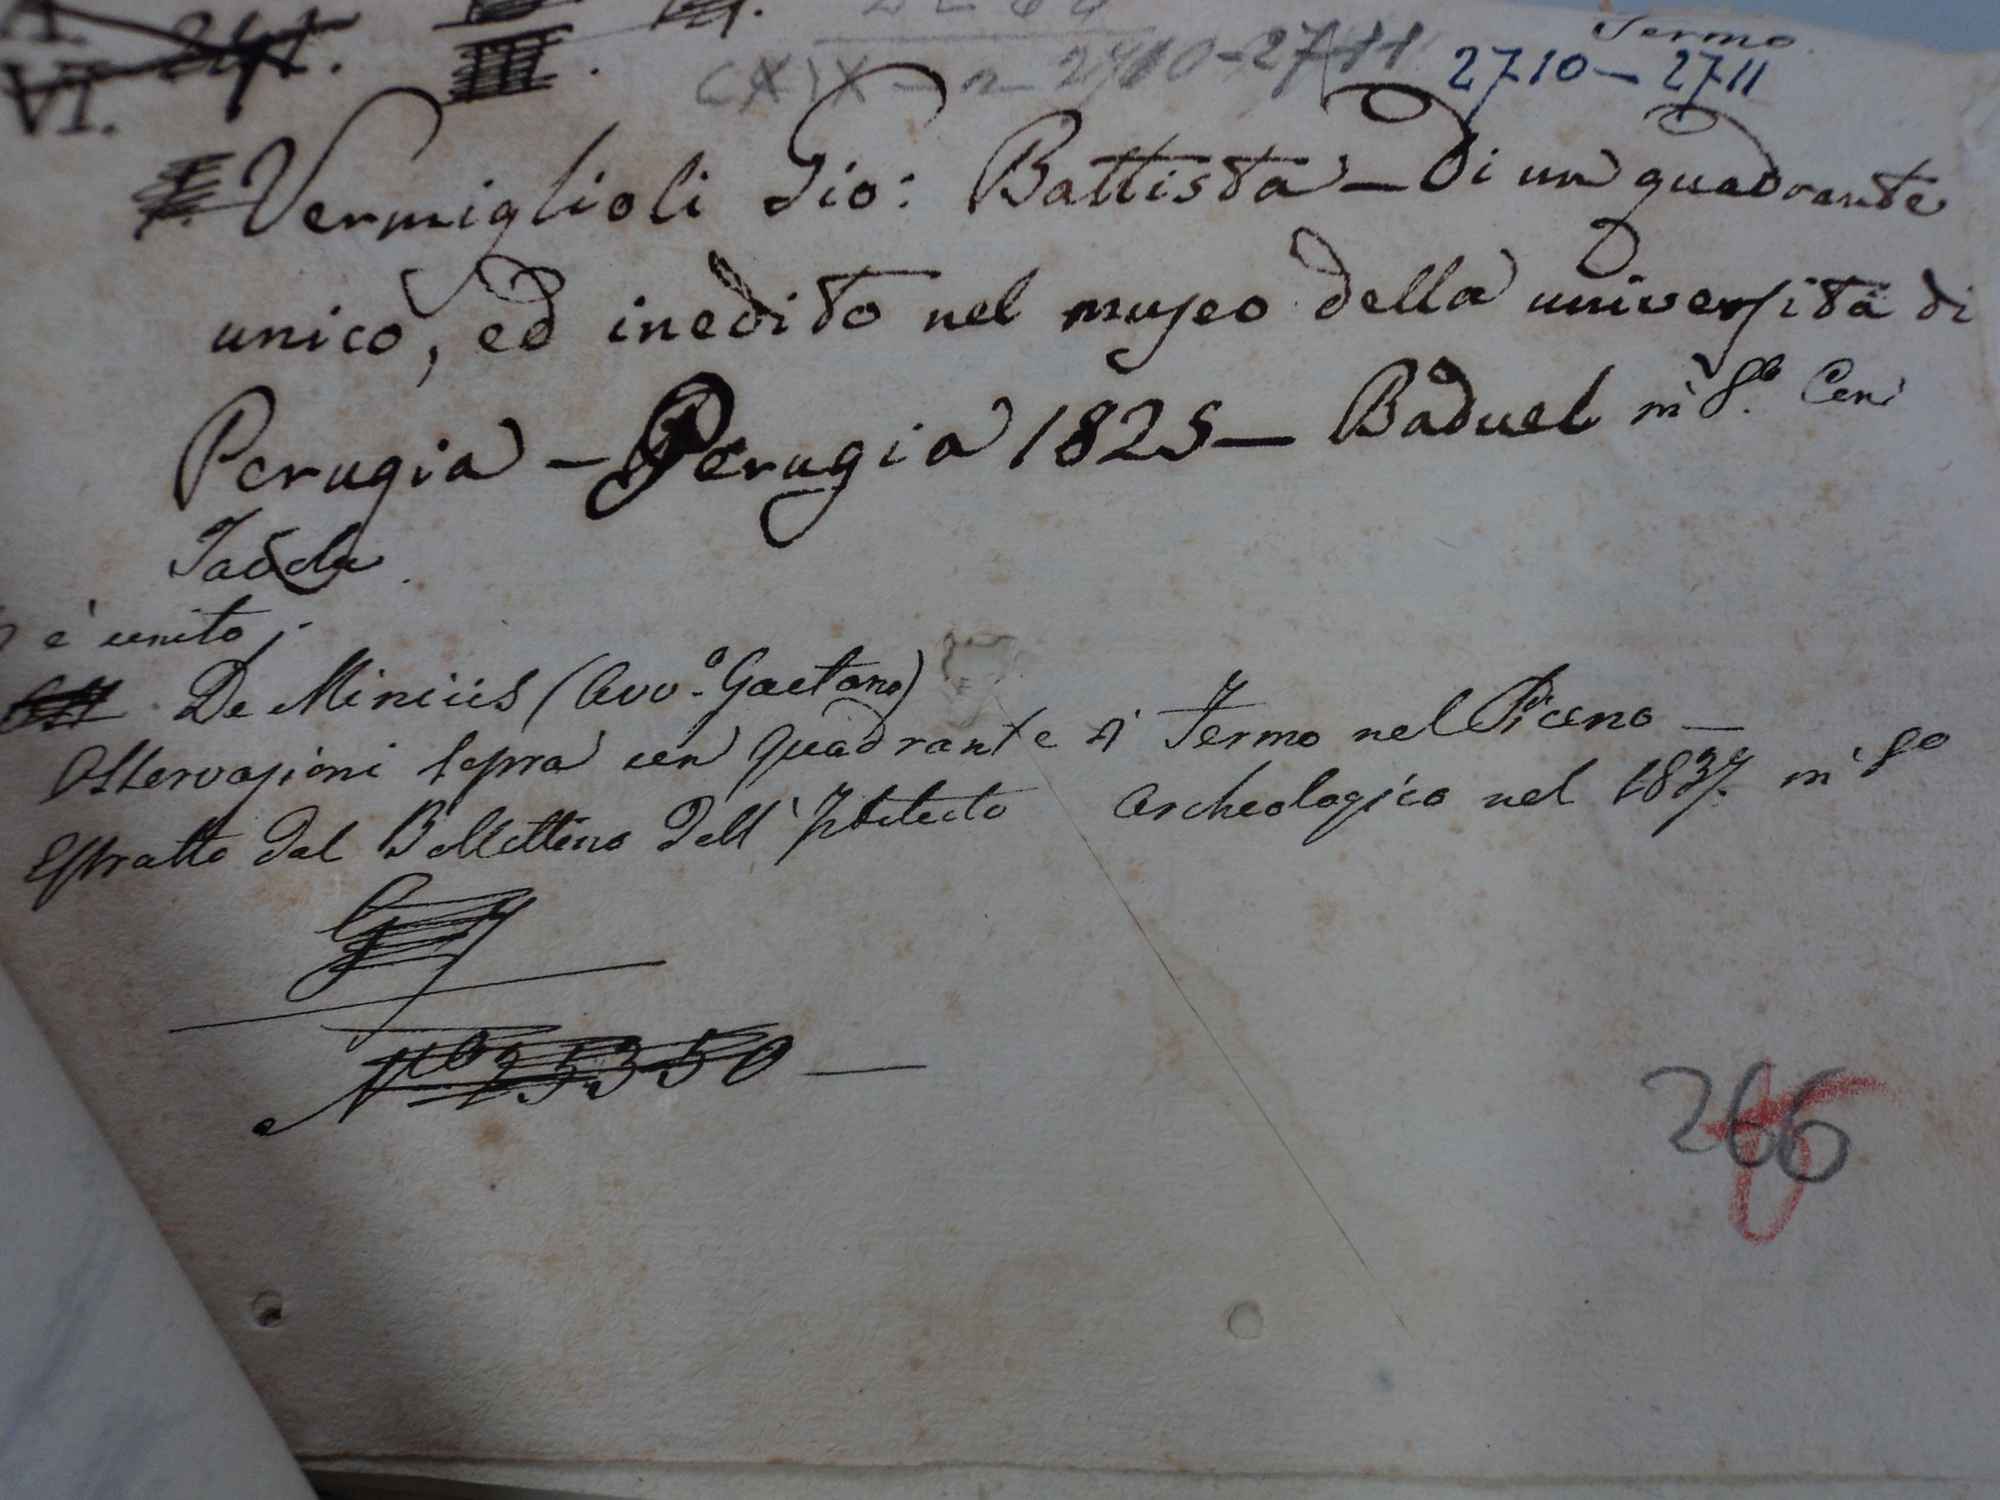 VI. 241. III.
Fermo
2710-2711
2710-2711
Vermiglioli Gio: Battista - Di un quadrante
unico, ed inedito nel museo della università di
Perugia - Perugia 1825 - Baduel in 8.º Con
Tavola
è unito;
De Miniis (Avv.º Gaetano)
Osservazioni sopra un quadrante di Fermo nel Piceno -
Estratto dal Bullettino dell'Istituto Archeologico nel 1837. in 8º
Nº 25350 -
266